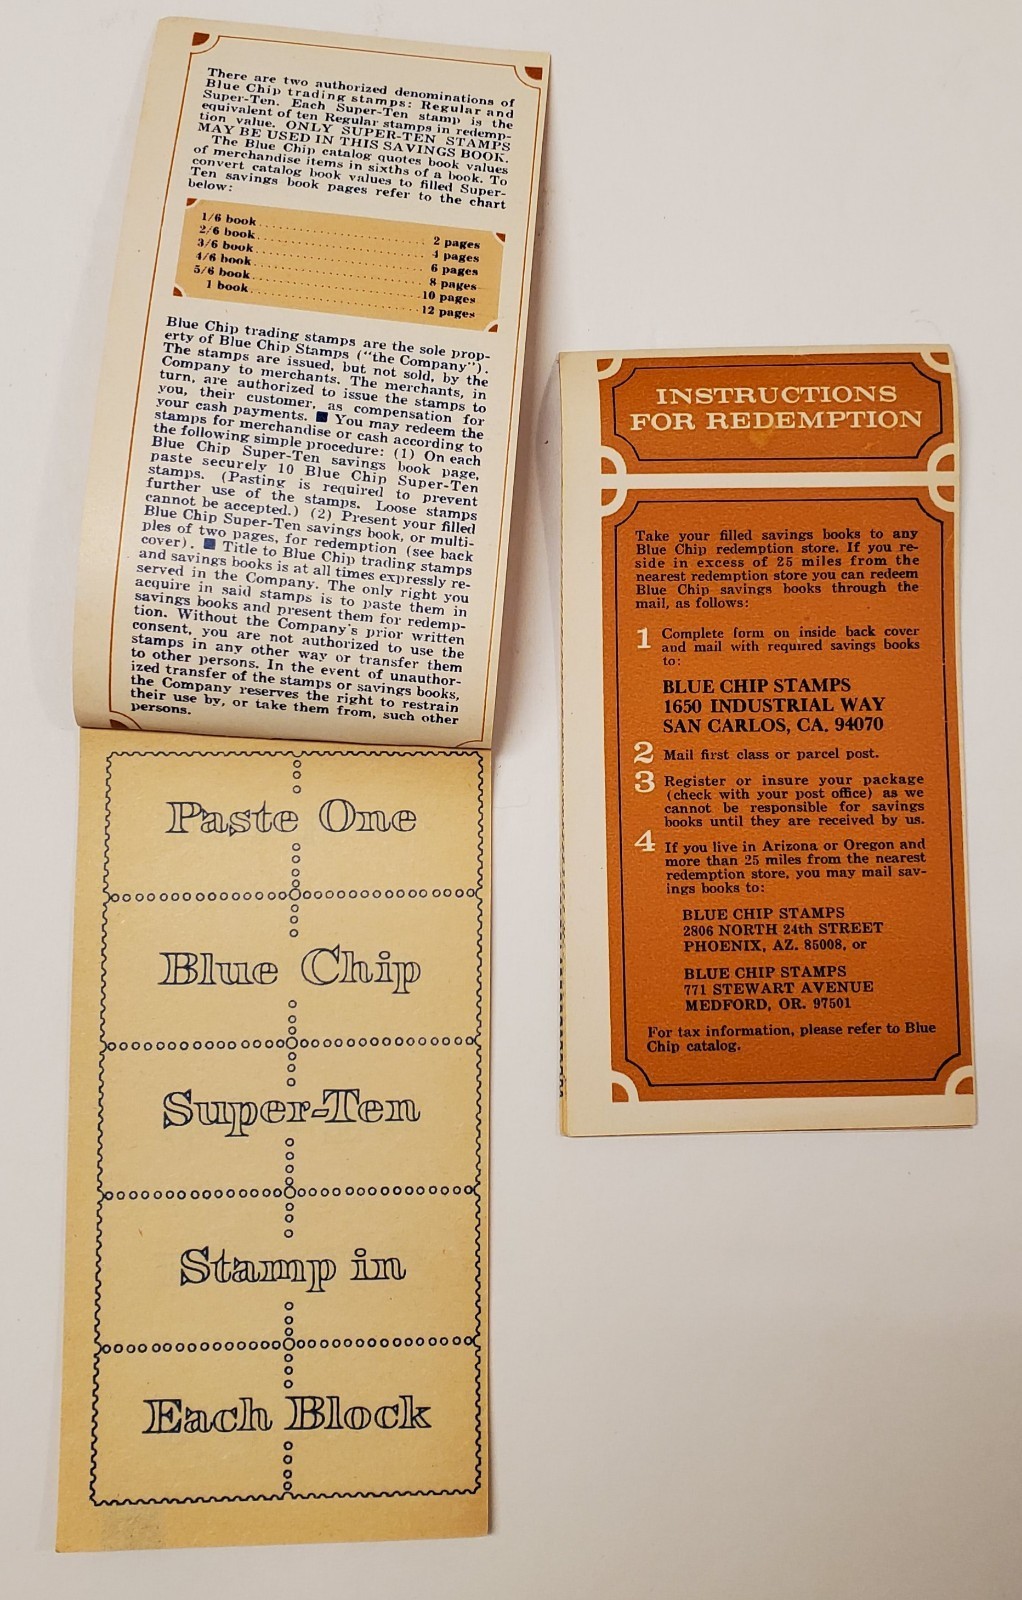 There are two authorized denominations of
Blue Chip trading stamps: Regular and
Super-Ten. Each Super-Ten stamp is the
equivalent of ten Regular stamps in redemp-
tion value. ONLY SUPER-TEN STAMPS
MAY BE USED IN THIS SAVINGS BOOK.
The Blue Chip catalog quotes book values
of merchandise items in sixths of a book. To
convert catalog book values to filled Super-
Ten savings book pages refer to the chart
below:
1/6 book 2 pages
2/6 book 4 pages
3/6 book 6 pages
4/6 book 8 pages
5/6 book 10 pages
1 book 12 pages
Blue Chip trading stamps are the sole prop-
erty of Blue Chip Stamps ("the Company").
The stamps are issued, but not sold, by the
Company to merchants. The merchants, in
turn, are authorized to issue the stamps to
you, their customer, as compensation for
your cash payments. ■ You may redeem the
stamps for merchandise or cash according to
the following simple procedure: (1) On each
Blue Chip Super-Ten savings book page,
paste securely 10 Blue Chip Super-Ten
stamps. (Pasting is required to prevent
further use of the stamps. Loose stamps
cannot be accepted.) (2) Present your filled
Blue Chip Super-Ten savings book, or multi-
ples of two pages, for redemption (see back
cover). ■ Title to Blue Chip trading stamps
and savings books is at all times expressly re-
served in the Company. The only right you
acquire in said stamps is to paste them in
savings books and present them for redemp-
tion. Without the Company's prior written
consent, you are not authorized to use the
stamps in any other way or transfer them
to other persons. In the event of unauthor-
ized transfer of the stamps or savings books,
the Company reserves the right to restrain
their use by, or take them from, such other
persons.
Paste One
Blue Chip
Super-Ten
Stamp in
Each Block
INSTRUCTIONS
FOR REDEMPTION
Take your filled savings books to any
Blue Chip redemption store. If you re-
side in excess of 25 miles from the
nearest redemption store you can redeem
Blue Chip savings books through the
mail, as follows:
1 Complete form on inside back cover
and mail with required savings books
to:
BLUE CHIP STAMPS
1650 INDUSTRIAL WAY
SAN CARLOS, CA. 94070
2 Mail first class or parcel post.
3 Register or insure your package
(check with your post office) as we
cannot be responsible for savings
books until they are received by us.
4 If you live in Arizona or Oregon and
more than 25 miles from the nearest
redemption store, you may mail sav-
ings books to:
BLUE CHIP STAMPS
2806 NORTH 24th STREET
PHOENIX, AZ. 85008, or
BLUE CHIP STAMPS
771 STEWART AVENUE
MEDFORD, OR. 97501
For tax information, please refer to Blue
Chip catalog.